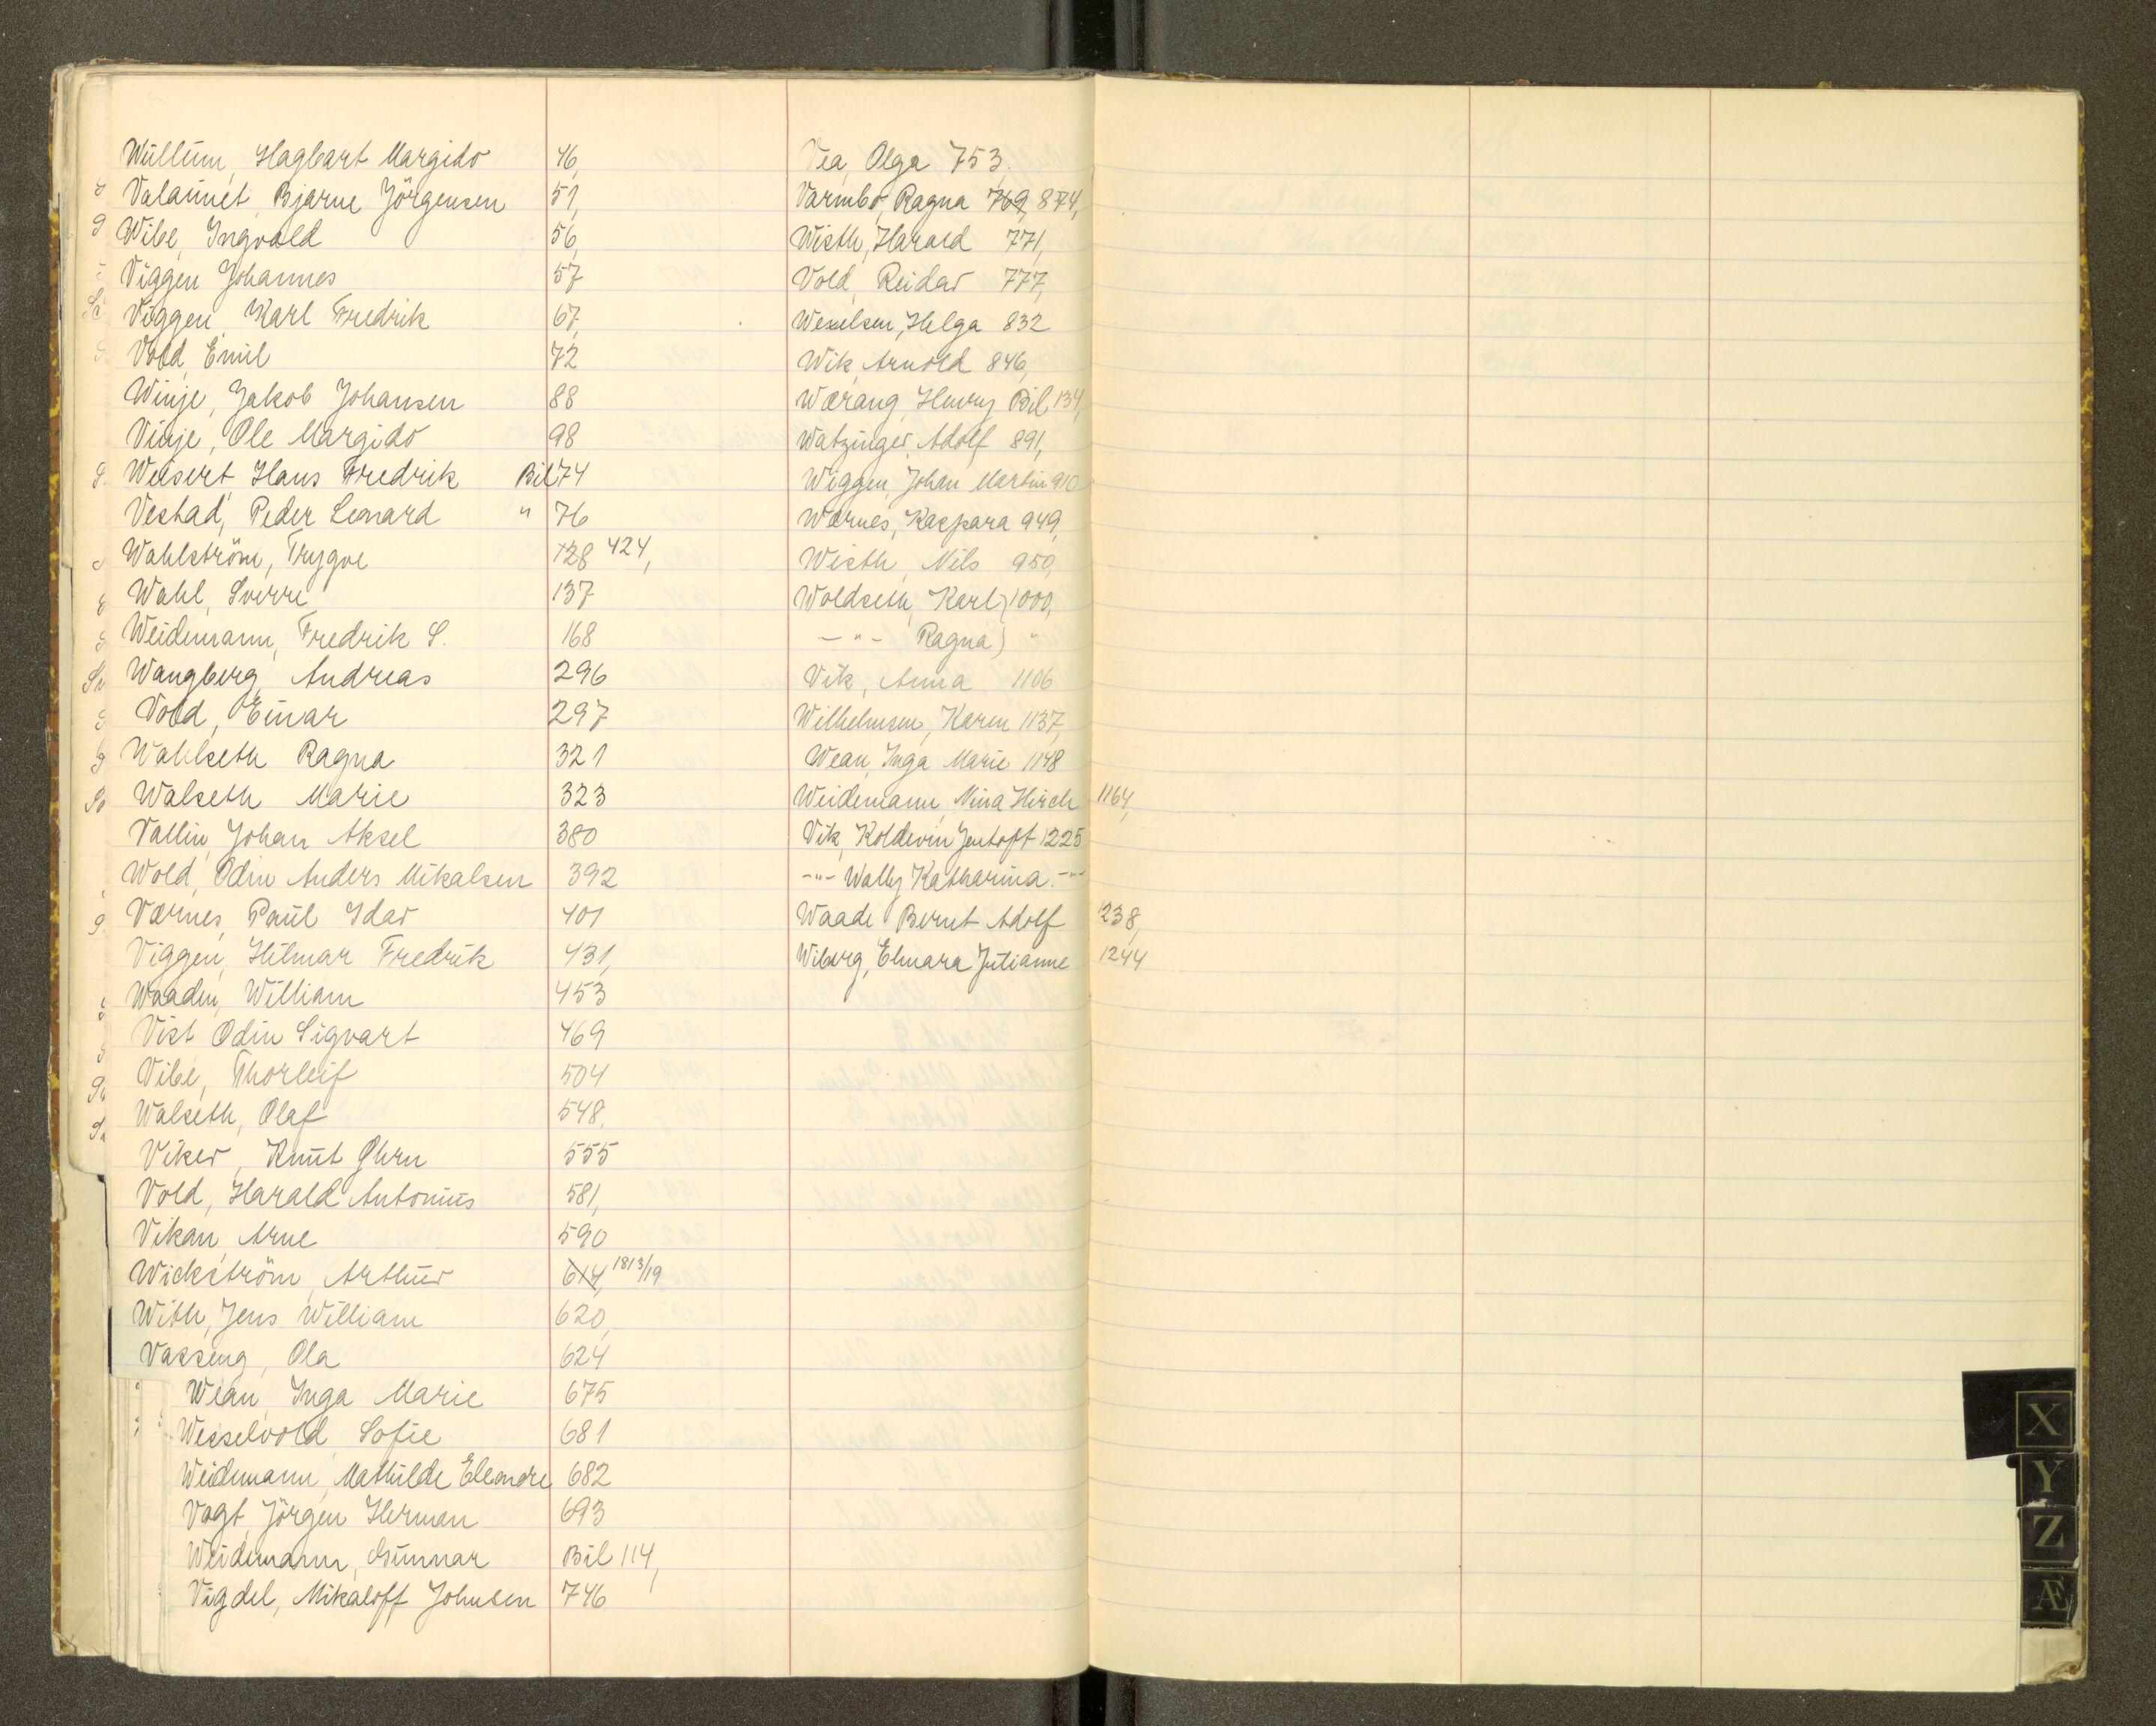 Wullum, Hagbart Margido 46,
Valaunet, Bjarne Jörgensen 51,
Wibe, Ingvald 56,
Viggen Johannes 57
Viggen, Karl Fredrik 67,
Vold, Emil 72
Winje, Jakob Johansen 88
Vinje, Ole Margido 98
Weisert, Hans Fredrik Bil 74
Vestad, Peder Leonard " 76
Wahlström, Trygve 128 424,
Wahl, Sverre 137
Weidemann, Fredrik S. 168
Wangberg, Andreas 296
Vold, Einar 297
Wahlseth Ragna 321
Walseth Marie 323
Vallin, Johan Aksel 380
Wold, Odin Anders Mikalsen 392
Værnes, Paul Idar 401
Viggen, Hilmar Fredrik 431,
Waaden, William 453
Vist Odin Sigvart 469
Vibe, Thorleif 504
Walseth, Olaf 548,
Viker, Knut Ohrn 555
Vold, Harald Antonius 581,
Vikan, Arne 590
Wickström, Arthur 614, 1813/19
With, Jens William 620,
Vasseng, Ola 624
Wean, Inga Marie 675
Wesselvold, Sofie 681
Weidemann, Mathilde Eleonore 682
Vogt, Jörgen Herman 693
Weidemann, Gunnar Bil 114,
Vigdel, Mikaloff Johnsen 746
Vea, Olga 753,
Varmbo, Ragna 769, 874,
Wisth, Harald 771,
Vold, Reidar 777,
Wexelsen, Helga 832
Wik, Arnold 846,
Wærang, Henry Bil 134,
Watzinger, Adolf 891,
Wiggen, Johan Martin 910
Wærnes, Kaspara 949,
Wisth, Nils 950,
Woldseth, Karl) 1000,
-"- Ragna) "
Vik, Anna 1106
Wilhelmsen, Karen 1137,
Wean, Inga Marie 1148
Weidemann, Nina Hirch 1164,
Vik, Koldevin Jentoft 1225
-"- Wally Katharina. -"-
Waade Bernt Adolf 1238,
Wiberg, Elmara Julianne 1244
X
Y
Z
Æ